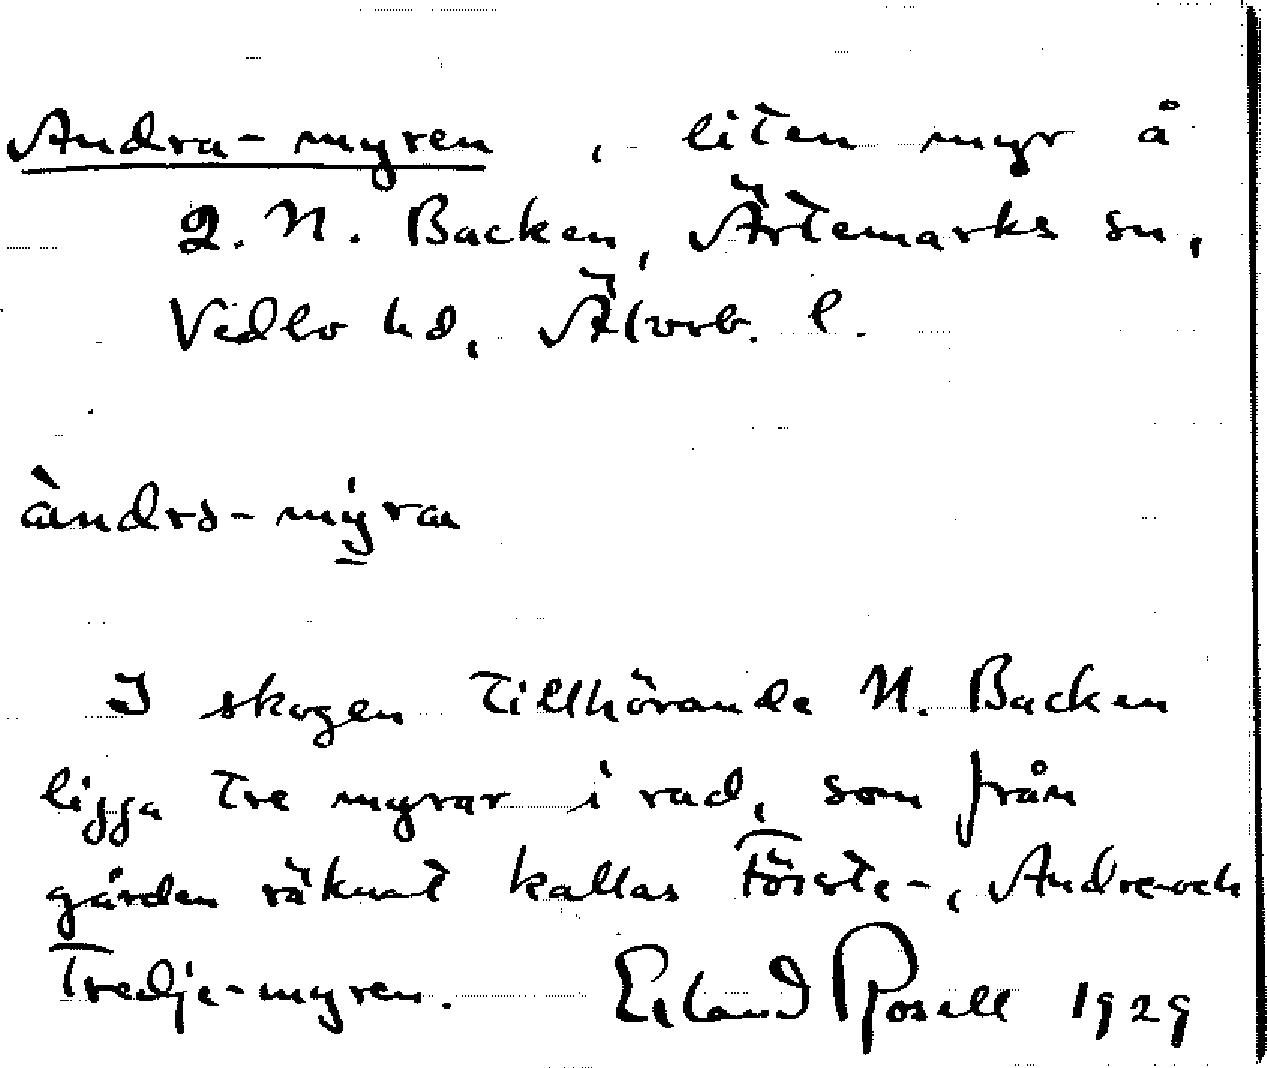 Andra-myren, liten myr å
2. N. Backen, Ärtemarks sn,
Vedbo hd, Älvsb. l.
àndrs-mýran
I skogen tillhörande N. Backen
ligga tre myrar i rad, som från
gården räknat kallas Förste-, Andre- och
Tredje-myren. Erland Rosell 1929